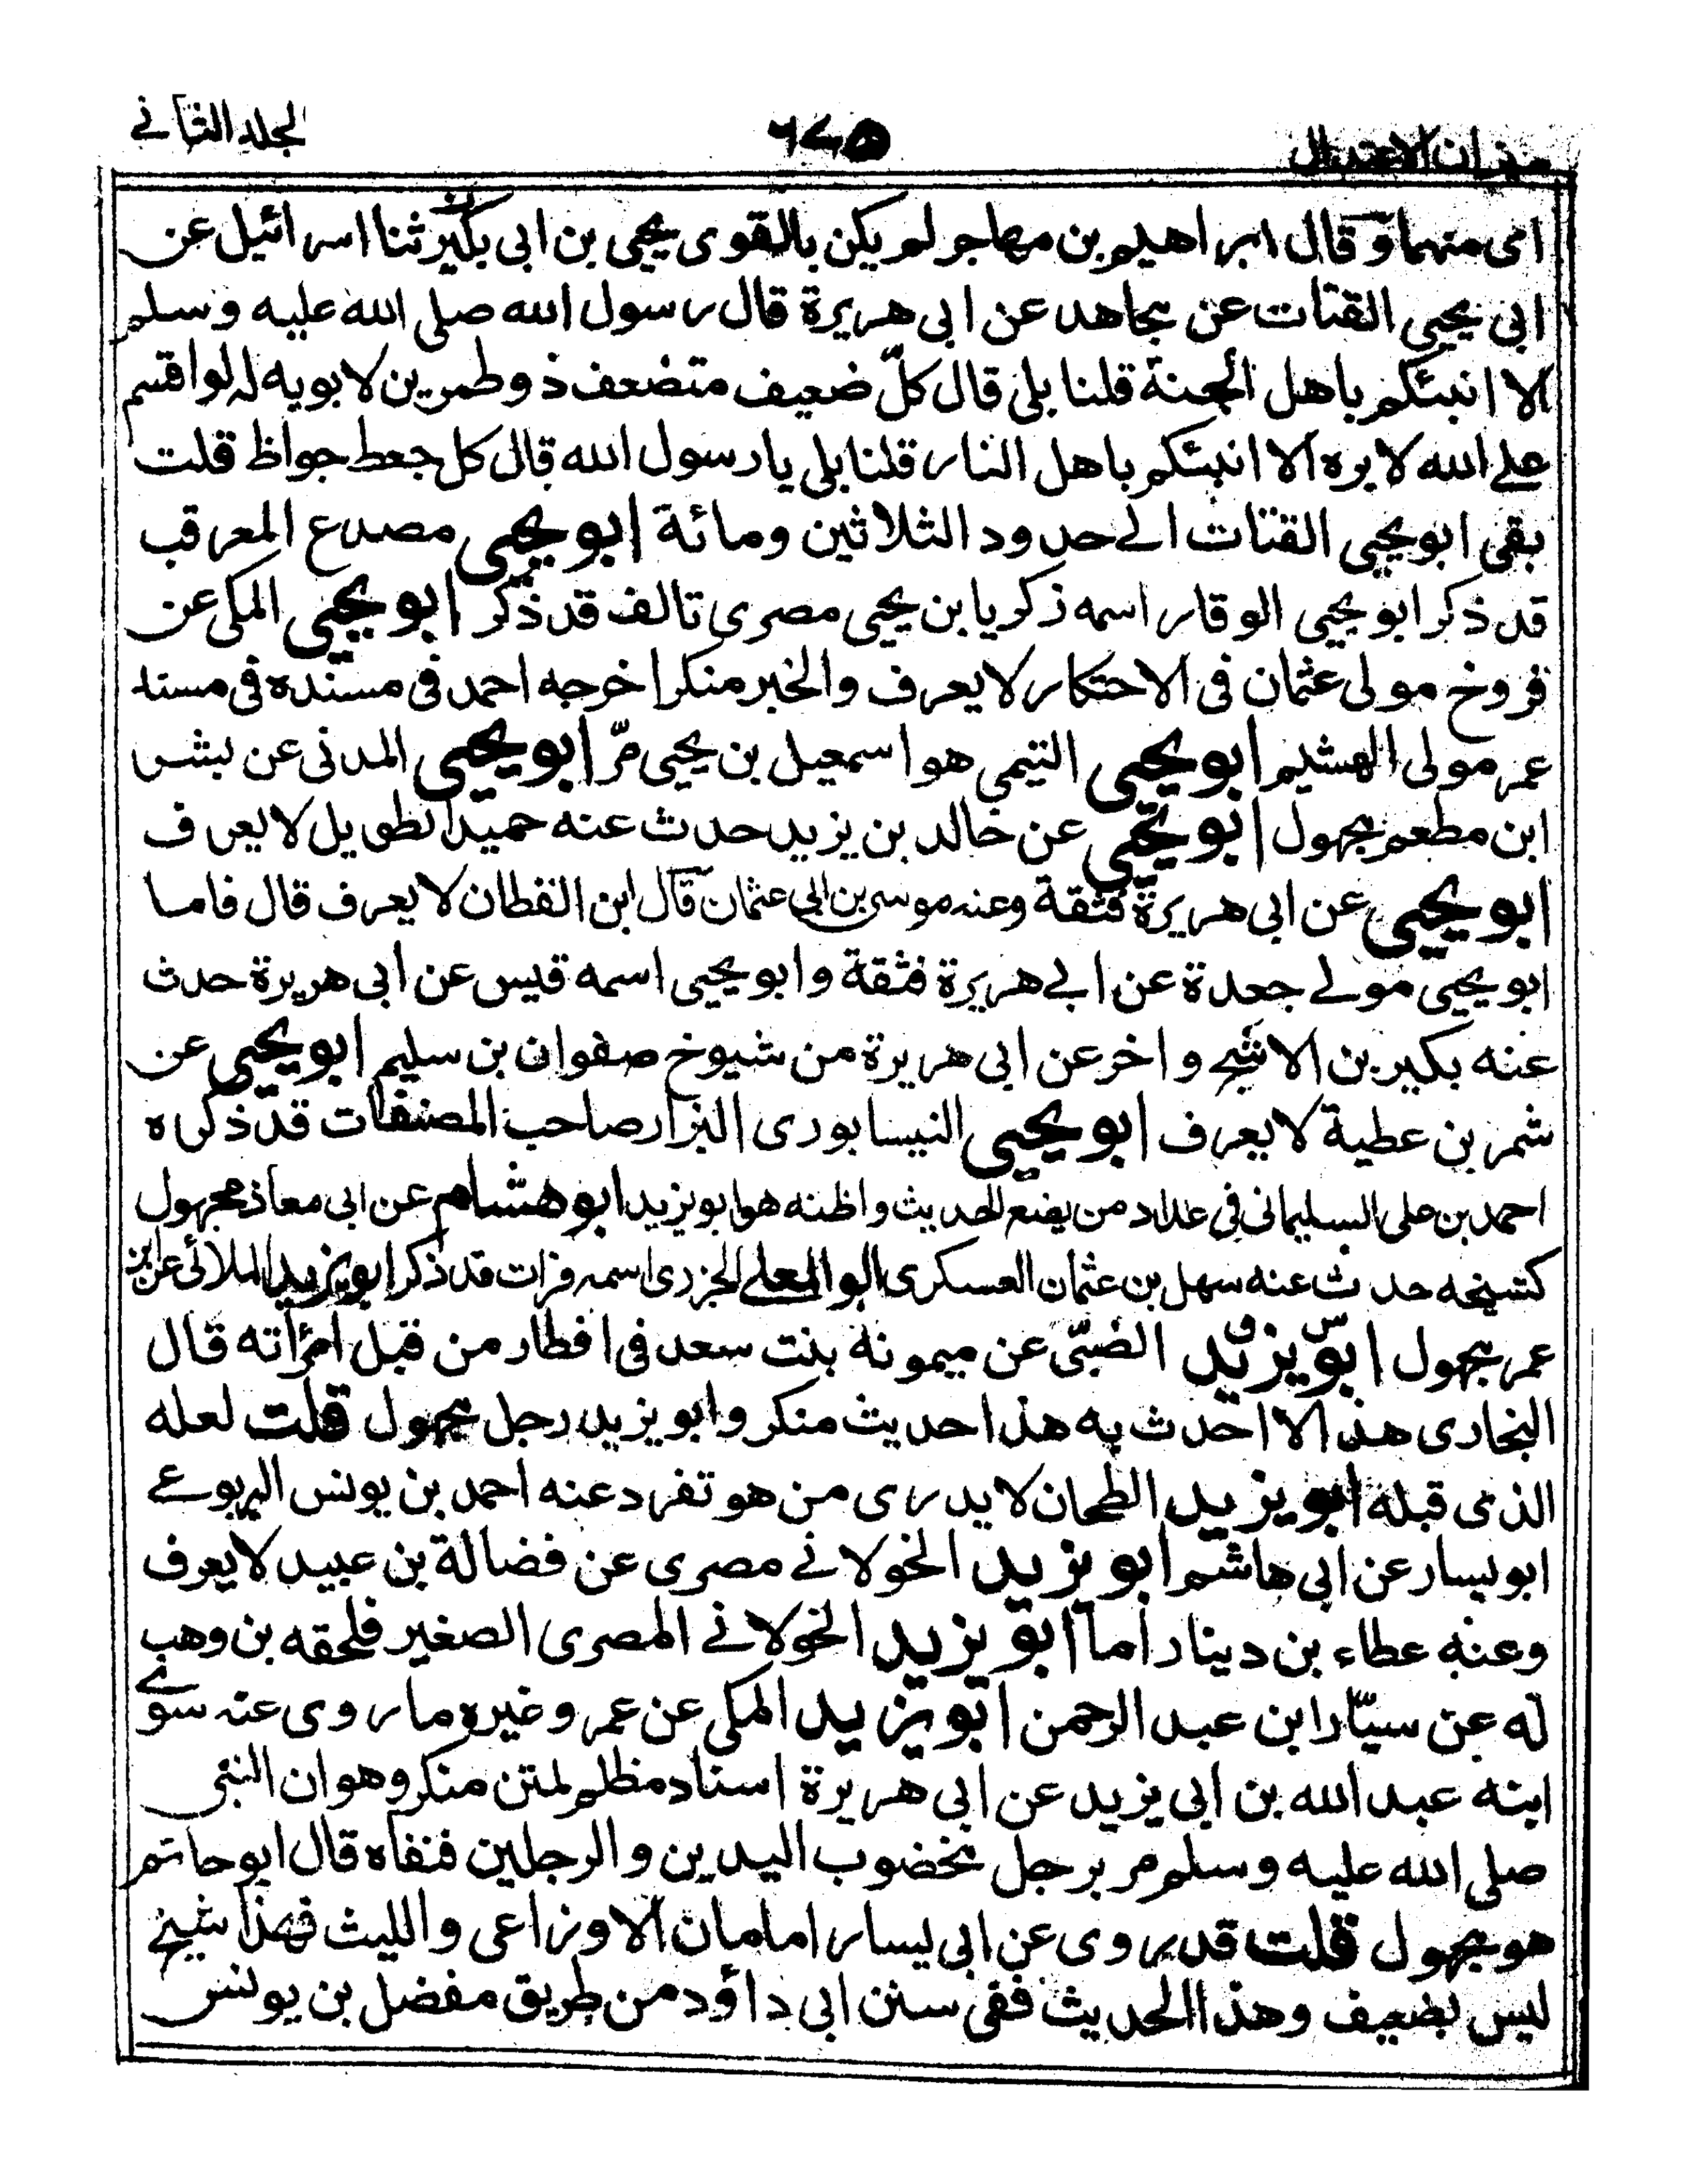 ميزان الاعتدال ٦٧٥ الجلد الثاني
امى منهما وقال ابراهيم بن مهاجر لم يكن بالقوى يحيى بن ابى بكير ثنا اسرائيل عن
ابى يحيى القتات عن مجاهد عن ابى هريرة قال رسول الله صلى الله عليه وسلم
الا انبئكم باهل الجنة قلنا بلى قال كلّ ضعيف متضعف ذو طمرين لا يوبه له لو اقسم
على الله لابره الا انبئكم باهل النار قلنا بلى يا رسول الله قال كل جعط جواظ قلت
بقى ابو يحيى القتات الى حدود الثلاثين ومائة ابو يحيى مصدع المعرقب
قد ذكر ابو يحيى الوقار اسمه زكريا بن يحيى مصرى تالف قد ذكر ابو يحيى المكى عن
فروخ مولى عثمان فى الاحتكار لا يعرف والخبر منكر اخرجه احمد فى مسنده فى مسند
عمر مولى الهشيم ابو يحيى التيمى هو اسمعيل بن يحيى مرّ ابو يحيى المدنى عن بشر
ابن مطعم مجهول ابو يحيى عن خالد بن يزيد حدث عنه حميد الطويل لا يعرف
ابو يحيى عن ابى هريرة فثقة وعنه موسى بن ابى عثمان قال ابن القطان لا يعرف قال فاما
ابو يحيى مولى جعدة عن ابى هريرة فثقة وابو يحيى اسمه قيس عن ابى هريرة حدث
عنه بكير بن الاشج واخر عن ابى هريرة من شيوخ صفوان بن سليم ابو يحيى عن
شمر بن عطية لا يعرف ابو يحيى النيسابورى البزار صاحب المصنفات قد ذكره
احمد بن على السليمانى فى عداد من يضع الحديث واظنه هو ابو يزيد ابو هشام عن ابى معاذ مجهول
كشيخه حدث عنه سهل بن عثمان العسكرى ابو المعلى الجزرى اسمه فرات قد ذكر ابو يزيد الملائى عن ابن
عمر مجهول ابو يزيد س ق الضبّى عن ميمونة بنت سعد فى افطار من قبل امرأته قال
البخارى هذا لا احدث به هذا حديث منكر وابو يزيد رجل مجهول قلت لعله
الذى قبله ابو يزيد الطحان لا يدرى من هو تفرد عنه احمد بن يونس اليربوعى
ابو يسار عن ابى هاشم ابو يزيد الخولانى مصرى عن فضالة بن عبيد لا يعرف
وعنه عطاء بن دينار اما ابو يزيد الخولانى المصرى الصغير فلحقه بن وهب
له عن سيّار ابن عبد الرحمن ابو يزيد المكى عن عمر وغيره ما روى عنه سوى
ابنه عبد الله بن ابى يزيد عن ابى هريرة اسناد مظلم لمتن منكر وهو ان النبى
صلى الله عليه وسلم مر برجل مخضوب اليدين والرجلين فنفاه قال ابو حاتم
هو مجهول قلت قد روى عن ابى يسار امامان الاوزاعى والليث فهذا شيخ
ليس بضعيف وهذا الحديث ففى سنن ابى داؤد من طريق مفضل بن يونس